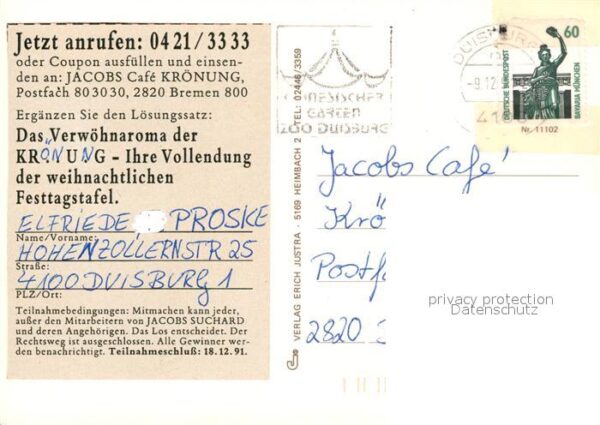 Jetzt anrufen: 0421/3333
oder Coupon ausfüllen und einsen-
den an: JACOBS Café KRÖNUNG,
Postfach 803030, 2820 Bremen 800
Ergänzen Sie den Lösungssatz:
Das Verwöhnaroma der
KRÖNUNG – Ihre Vollendung
der weihnachtlichen
Festtagstafel.
ELFRIEDE PROSKE
Name/Vorname:
HOHENZOLLERNSTR 25
Straße:
4100 DUISBURG 1
PLZ/Ort:
Teilnahmebedingungen: Mitmachen kann jeder,
außer den Mitarbeitern von JACOBS SUCHARD
und deren Angehörigen. Das Los entscheidet. Der
Rechtsweg ist ausgeschlossen. Alle Gewinner wer-
den benachrichtigt. Teilnahmeschluß: 18.12.91.
VERLAG ERICH JUSTRA · 5169 HEIMBACH 2 · TEL.: 02446/3359
CHINESISCHER
GARTEN
ZOO DUISBURG
DUISBURG
-9.12
410
60
DEUTSCHE BUNDESPOST
BAVARIA MÜNCHEN
Nr. 11102
Jacobs Café
Krö
Postf
2820
privacy protection
Datenschutz